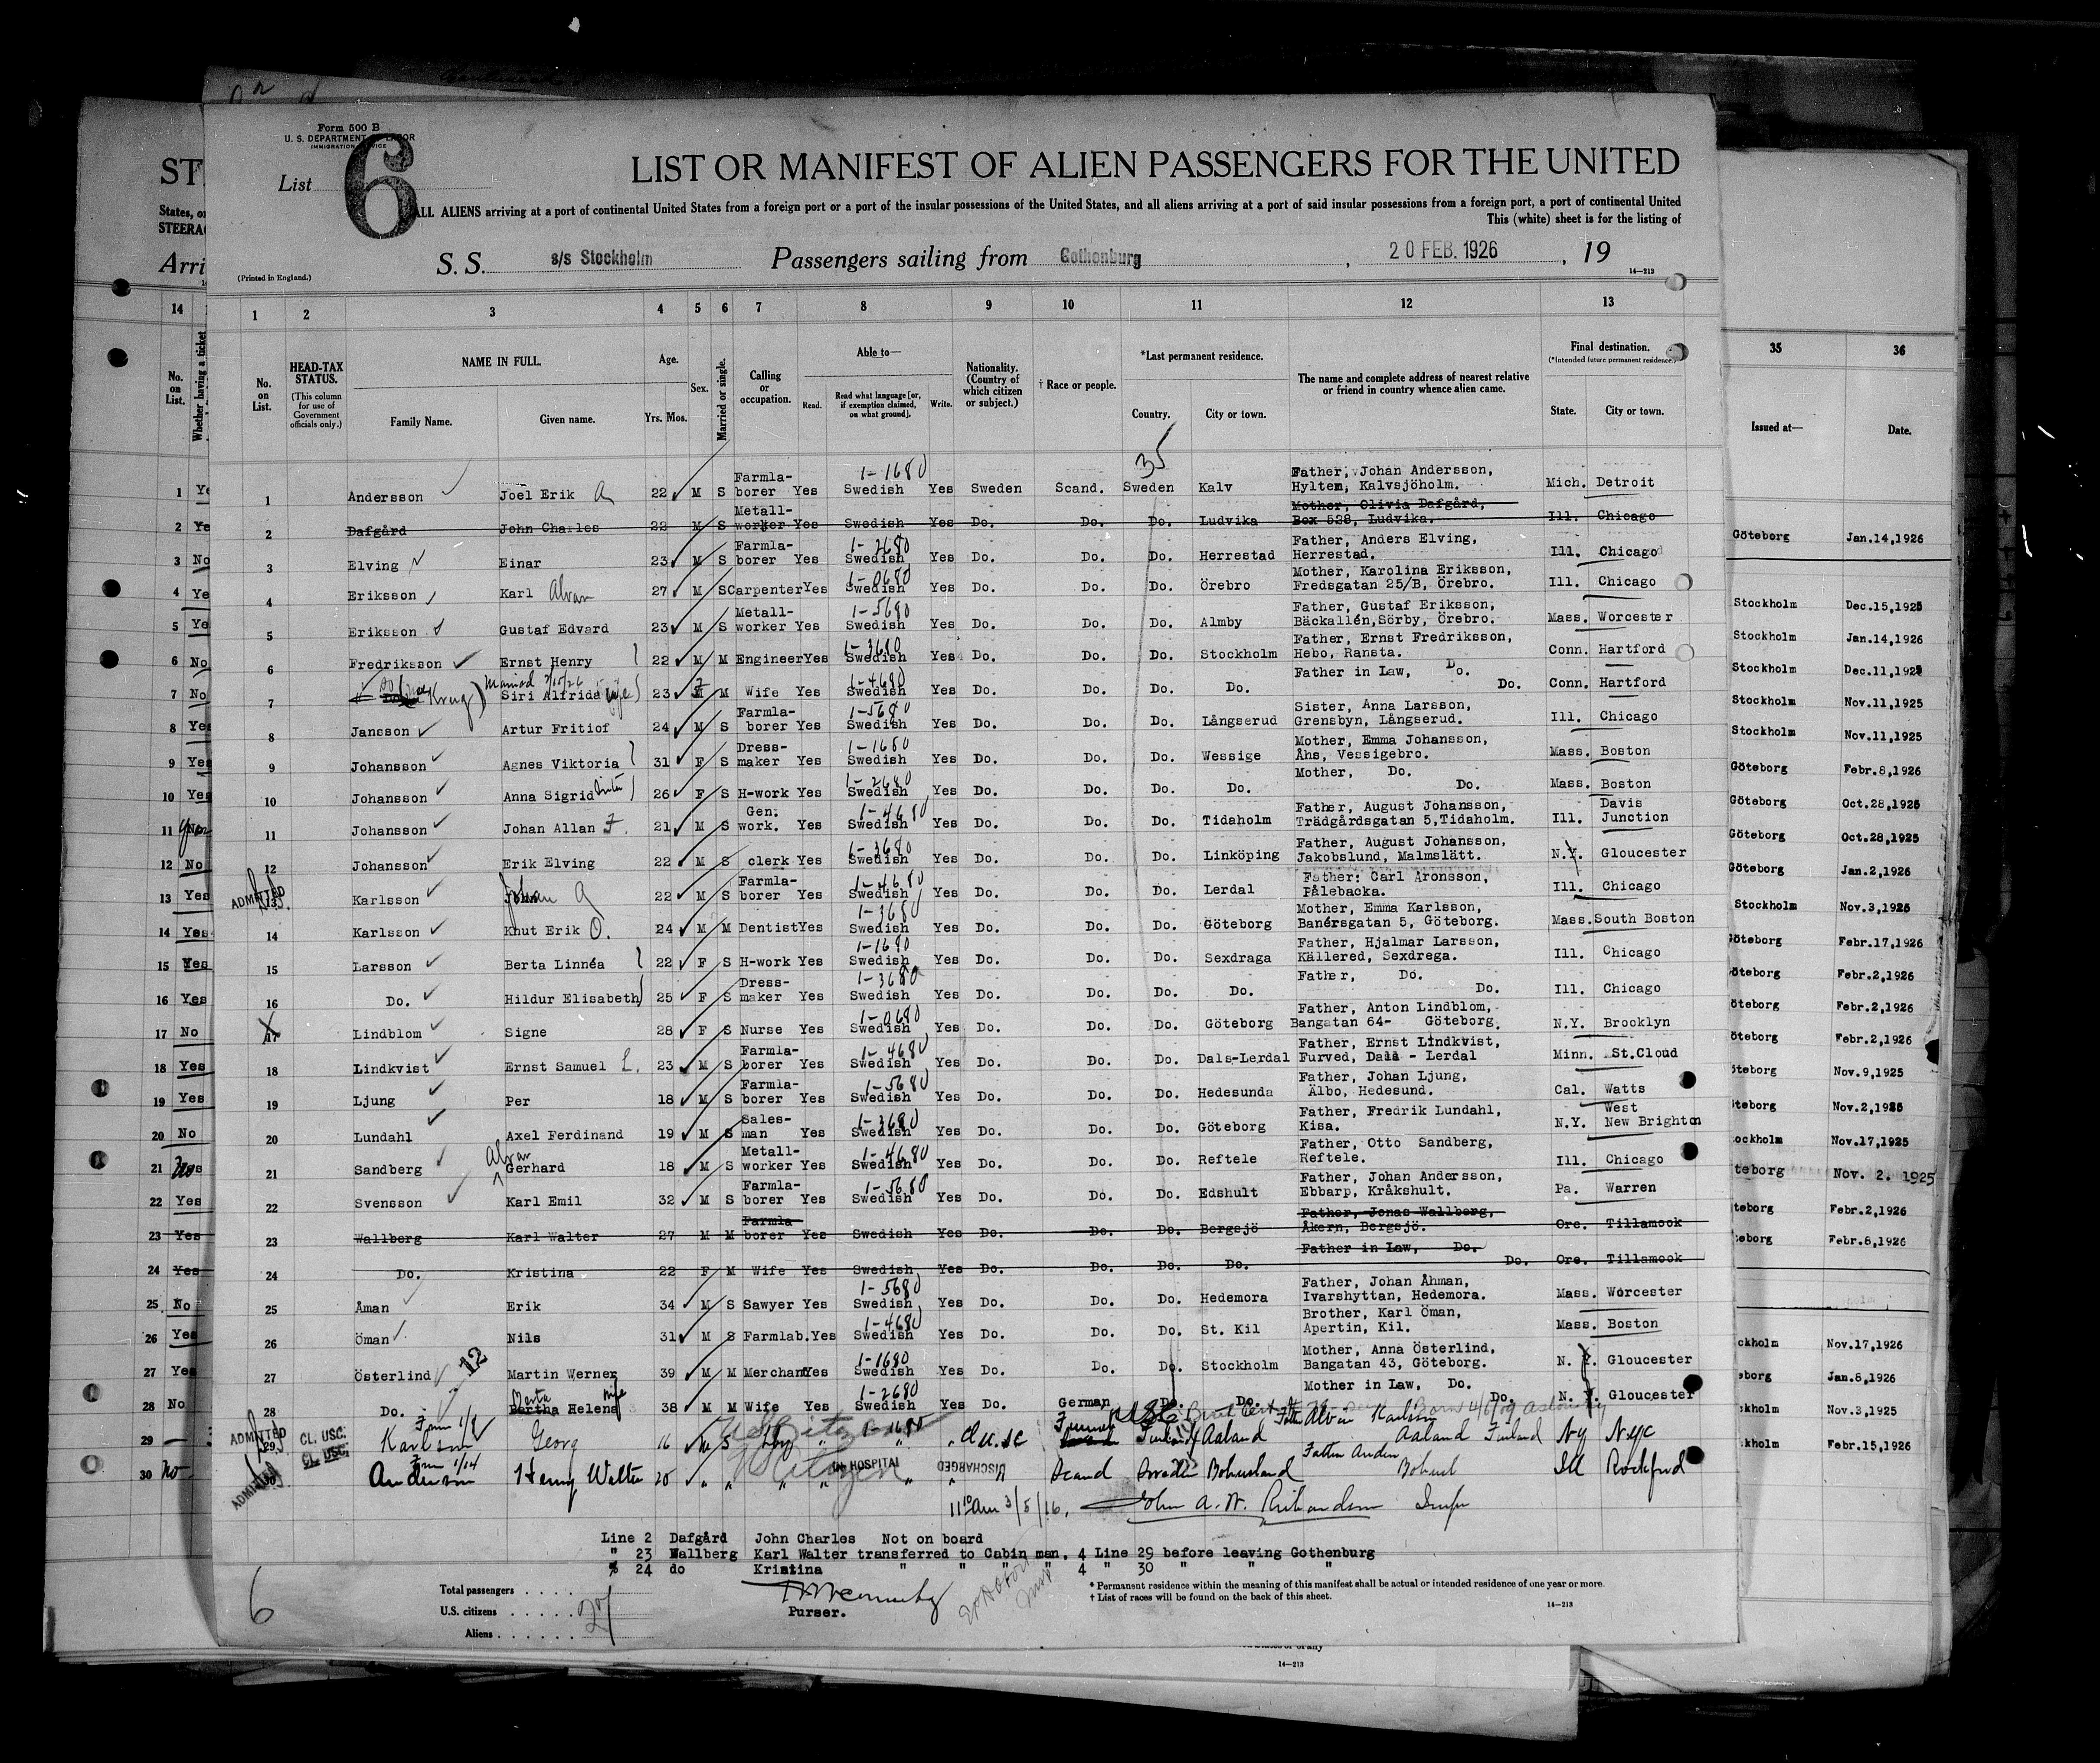 Form 500 B
U. S. DEPARTMENT OF LABOR
IMMIGRATION SERVICE
List 6
LIST OR MANIFEST OF ALIEN PASSENGERS FOR THE UNITED
ALL ALIENS arriving at a port of continental United States from a foreign port or a port of the insular possessions of the United States, and all aliens arriving at a port of said insular possessions from a foreign port, a port of continental United
This (white) sheet is for the listing of
(Printed in England.)
S. S. s/s Stockholm Passengers sailing from Gothenburg, 20 FEB. 1926, 19
14—213
1 2 3 4 5 6 7 8 9 10 11 12 13
No. on List.
HEAD-TAX STATUS.
(This column for use of Government officials only.)
NAME IN FULL.
Family Name. Given name.
Age.
Yrs. Mos.
Sex.
Married or single.
Calling or occupation.
Able to—
Read. Read what language [or, if exemption claimed, on what ground]. Write.
Nationality. (Country of which citizen or subject.)
† Race or people.
*Last permanent residence.
Country. City or town.
The name and complete address of nearest relative or friend in country whence alien came.
Final destination.
(*Intended future permanent residence.)
State. City or town.
35
1 Andersson Joel Erik A 22 M S Farmlaborer Yes 1-1680 Swedish Yes Sweden Scand. Sweden Kalv Father, Johan Andersson, Hyltem, Kalvsjöholm. Mich. Detroit
2 Dafgård John Charles 22 M S Metallworker Yes Swedish Yes Do. Do. Do. Ludvika Mother, Olivia Dafgård, Box 528, Ludvika. Ill. Chicago
3 Elving Einar 23 M S Farmlaborer Yes 1-2680 Swedish Yes Do. Do. Do. Herrestad Father, Anders Elving, Herrestad. Ill. Chicago
4 Eriksson Karl Alvar 27 M S Carpenter Yes 1-0680 Swedish Yes Do. Do. Do. Örebro Mother, Karolina Eriksson, Fredsgatan 25/B, Örebro. Ill. Chicago
5 Eriksson Gustaf Edvard 23 M S Metallworker Yes 1-5680 Swedish Yes Do. Do. Do. Almby Father, Gustaf Eriksson, Bäckallén,Sörby, Örebro. Mass. Worcester
6 Fredriksson Ernst Henry 22 M M Engineer Yes 1-3680 Swedish Yes Do. Do. Do. Stockholm Father, Ernst Fredriksson, Hebo, Ransta. Conn. Hartford
7 Married 2/15/26 Siri Alfrida wife 23 F M Wife Yes 1-4680 Swedish Yes Do. Do. Do. Do. Father in Law, Do. Do. Conn. Hartford
8 Jansson Artur Fritiof 24 M S Farmlaborer Yes 1-5680 Swedish Yes Do. Do. Do. Långserud Sister, Anna Larsson, Grensbyn, Långserud. Ill. Chicago
9 Johansson Agnes Viktoria 31 F S Dressmaker Yes 1-1680 Swedish Yes Do. Do. Do. Wessige Mother, Emma Johansson, Åhs, Vessigebro. Mass. Boston
10 Johansson Anna Sigrid 26 F S H-work Yes 1-2680 Swedish Yes Do. Do. Do. Do. Mother, Do. Do. Mass. Boston
11 Johansson Johan Allan F. 21 M S Gen. work. Yes 1-4680 Swedish Yes Do. Do. Do. Tidaholm Father, August Johansson, Trädgårdsgatan 5,Tidaholm. Ill. Davis Junction
12 Johansson Erik Elving 22 M S clerk Yes 1-3680 Swedish Yes Do. Do. Do. Linköping Father, August Johansson, Jakobslund, Malmslätt. N.Y. Gloucester
ADMITTED 13 Karlsson Johan G 22 M S Farmlaborer Yes 1-4680 Swedish Yes Do. Do. Do. Lerdal Father: Carl Aronsson, Pålebacka. Ill. Chicago
14 Karlsson Knut Erik O. 24 M M Dentist Yes 1-3680 Swedish Yes Do. Do. Do. Göteborg Mother, Emma Karlsson, Banérsgatan 5, Göteborg. Mass. South Boston
15 Larsson Berta Linnéa 22 F S H-work Yes 1-1680 Swedish Yes Do. Do. Do. Sexdraga Father, Hjalmar Larsson, Källered, Sexdrega. Ill. Chicago
16 Do. Hildur Elisabeth 25 F S Dressmaker Yes 1-3680 Swedish Yes Do. Do. Do. Do. Father, Do. Do. Ill. Chicago
17 Lindblom Signe 28 F S Nurse Yes 1-0680 Swedish Yes Do. Do. Do. Göteborg Father, Anton Lindblom, Bangatan 64- Göteborg. N.Y. Brooklyn
18 Lindkvist Ernst Samuel L. 23 M S Farmlaborer Yes 1-4680 Swedish Yes Do. Do. Do. Dals-Lerdal Father, Ernst Lindkvist, Furved, Dals - Lerdal Minn. St.Cloud
19 Ljung Per 18 M S Farmlaborer Yes 1-5680 Swedish Yes Do. Do. Do. Hedesunda Father, Johan Ljung, Älbo, Hedesund. Cal. Watts
20 Lundahl Axel Ferdinand 19 M S Salesman Yes 1-3680 Swedish Yes Do. Do. Do. Göteborg Father, Fredrik Lundahl, Kisa. N.Y. West New Brighton
21 Sandberg Alvar Gerhard 18 M S Metallworker Yes 1-4680 Swedish Yes Do. Do. Do. Reftele Father, Otto Sandberg, Reftele. Ill. Chicago
22 Svensson Karl Emil 32 M S Farmlaborer Yes 1-5680 Swedish Yes Do. Do. Do. Edshult Father, Johan Andersson, Ebbarp, Kråkshult. Pa. Warren
23 Wallberg Karl Walter 27 M M Farmlaborer Yes Swedish Yes Do. Do. Do. Bergsjö Father, Jonas Wallberg, Åkern, Bergsjö. Ore. Tillamook
24 Do. Kristina 22 F M Wife Yes Swedish Yes Do. Do. Do. Do. Father in Law, Do. Do. Ore. Tillamook
25 Åman Erik 34 M S Sawyer Yes 1-5680 Swedish Yes Do. Do. Do. Hedemora Father, Johan Åhman, Ivarshyttan, Hedemora. Mass. Worcester
26 Öman Nils 31 M S Farmlab. Yes 1-4680 Swedish Yes Do. Do. Do. St. Kil Brother, Karl Öman, Apertin, Kil. Mass. Boston
27 Österlind 12 Martin Werner 39 M M Merchant Yes 1-1680 Swedish Yes Do. Do. Do. Stockholm Mother, Anna Österlind, Bangatan 43, Göteborg. N. Y. Gloucester
28 Do. Bertha Helena wife 38 M M Wife Yes 1-2680 Swedish Yes Do. German Do. Do. Mother in Law, Do. Do. N. Y. Gloucester
ADMITTED 29 CL. USC. Karlson Georg 16 M S US Citizen 1-1680 Cl U.S.C Finland Aaland Father Alvin Karlson Aaland Finland NY NYC
ADMITTED 30 CL. USC. Anderson Henry Walter 20 US Citizen IN HOSPITAL DISCHARGED Scand Sweden Bohusland Father Bohusl Ill Rockford
11 10 am 3/5/16. John A. W. Richardson
Line 2 Dafgård John Charles Not on board
" 23 Wallberg Karl Walter transferred to Cabin man. 4 Line 29 before leaving Gothenburg
" 24 do Kristina " " " 4 " 30 " " "
Total passengers
U.S. citizens
Aliens
Purser.
6
* Permanent residence within the meaning of this manifest shall be actual or intended residence of one year or more.
† List of races will be found on the back of this sheet.
14—213
ST
States, or
STEERAG
Arri
14
No. on List.
Whether having a ticket
1 Ye
2 Ye
3 No
4 Ye
5 Ye
6 No
7 No
8 Yes
9 Yes
10 Yes
11
12 No
13 Yes
14 Yes
15 Yes
16 Yes
17 No
18 Yes
19 Yes
20 No
21 No
22 Yes
23 Yes
24 Yes
25 No
26 Yes
27 Yes
28 No
29
30 no
35 36
Issued at— Date.
Göteborg Jan.14,1926
Stockholm Dec.15,1925
Stockholm Jan.14,1926
Stockholm Dec.11,1925
Stockholm Nov.11,1925
Stockholm Nov.11,1925
Göteborg Febr.8,1926
Göteborg Oct.28,1925
Göteborg Oct.28,1925
Göteborg Jan.2,1926
Stockholm Nov.3,1925
öteborg Febr.17,1926
öteborg Febr.2,1926
öteborg Febr.2,1926
öteborg Febr.2,1926
öteborg Nov.9,1925
öteborg Nov.2,1925
ockholm Nov.17,1925
teborg Nov. 2. 1925
teborg Febr.2,1926
teborg Febr.8,1926
ckholm Nov.17,1926
eborg Jan.8,1926
ckholm Nov.3,1925
kholm Febr.15,1926
14—213